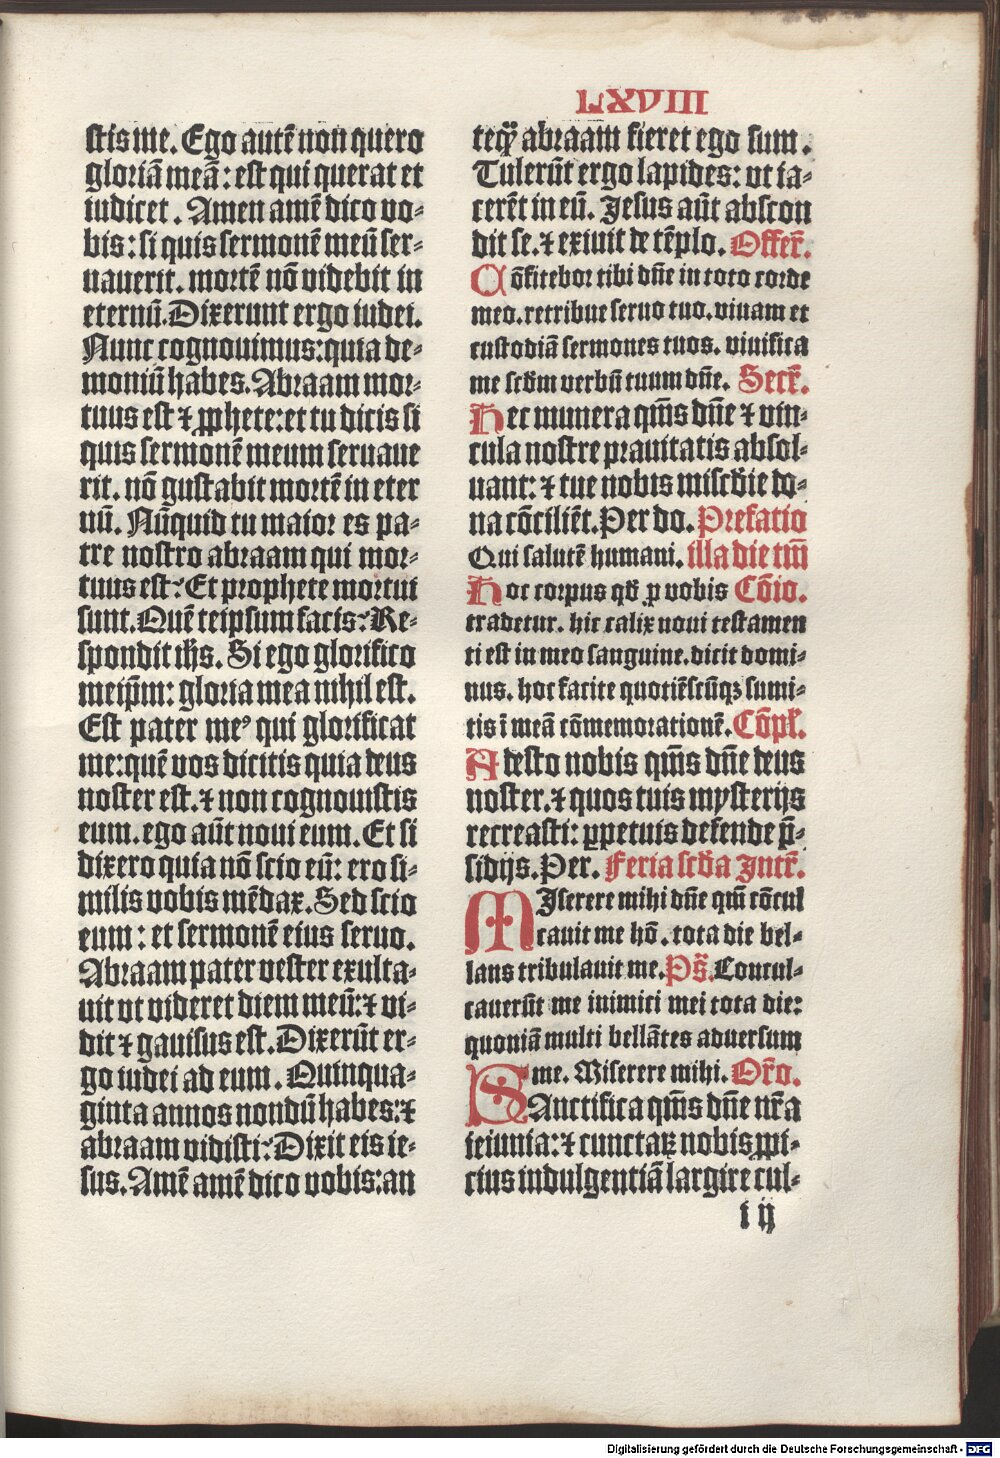 LXVIII
stis me. Ego autē non quero
gloriā meā: est qui querat et
iudicet. Amen amē dico vo⸗
bis: si quis sermonē meū ser⸗
uauerit. mortē nō videbit in
eternū. Dixerunt ergo iudei.
Nunc cognouimus: quia de⸗
moniū habes. Abraam mor⸗
tuus est ⁊ ꝓphete: et tu dicis si
quis sermonē meum seruaue
rit. nō gustabit mortē in eter
nū. Nūquid tu maior es pa⸗
tre nostro abraam qui mor⸗
tuus est? Et prophete mortui
sunt. Quē teipsum facis? Re⸗
spondit ihs̄. Si ego glorifico
meip̄m: gloria mea nihil est.
Est pater meꝰ qui glorificat
me: quē vos dicitis quia deus
noster est. ⁊ non cognouistis
eum. ego aūt noui eum. Et si
dixero quia nō scio eū: ero si⸗
milis vobis mēdax. Sed scio
eum: et sermonē eius seruo.
Abraam pater vester exulta⸗
uit vt videret diem meū: ⁊ vi⸗
dit ⁊ gauisus est. Dixerūt er⸗
go iudei ad eum. Quinqua⸗
ginta annos nondū habes: ⁊
abraam vidisti? Dixit eis ie⸗
sus. Amē amē dico vobis: an
teq̄ȝ abraam fieret ego sum.
Tulerūt ergo lapides: vt ia⸗
cerēt in eū. Jesus aūt abscon
dit se. ⁊ exiuit de tēplo. Offer̄.
Cōfitebor tibi dn̄e in toto corde
meo. retribue seruo tuo. viuam et
custodiā sermones tuos. viuifica
me scd̄m verbū tuum dn̄e. Secr̄.
Hec munera qm̄s dn̄e ⁊ vin⸗
cula nostre prauitatis absol⸗
uant: ⁊ tue nobis mīscd̄ie do⸗
na cōciliēt. Per do. Prefatio
Qui salutē humani. illa die tm̄
Hoc corpus qd̄ ꝓ vobis Cōio.
tradetur. hic calix noui testamen
ti est in meo sanguine. dicit domi⸗
nus. hoc facite quotiēscūqȝ sumi⸗
tis ī meā cōmemorationē. Cōpl̄.
Adesto nobis qm̄s dn̄e deus
noster. ⁊ quos tuis mysterijs
recreasti: ꝑpetuis defende p̄⸗
sidijs. Per. Feria scd̄a Intr̄.
MIserere mihi dn̄e qm̄ cōcul
cauit me hō. tota die bel⸗
lans tribulauit me. Ps̄. Concul⸗
cauerūt me inimici mei tota die:
quoniā multi bellātes aduersum
me. Miserere mihi. Or̄o.
SAnctifica qm̄s dn̄e nr̄a
ieiunia: ⁊ cunctaꝝ nobis ꝓpi⸗
cius indulgentiā largire cul⸗
i ij
Digitalisierung gefördert durch die Deutsche Forschungsgemeinschaft - DFG